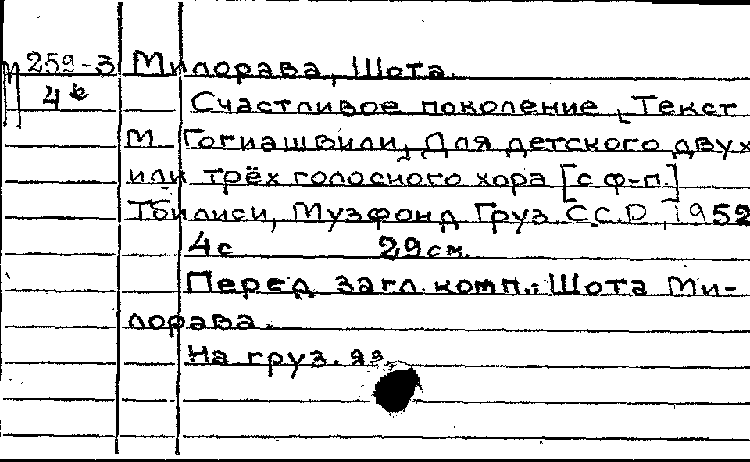 М 259-3 Милорава, Шота.
4 Счастливое поколение, Текст
М. Гогиашвили, Для детского двух
или трёх голосного хора [с ф-п.]
Тбилиси, Музфонд Груз. С.С.Р, 1952
4с 29см.
Перед загл. комп.: Шота Ми-
лорава.
На груз. яз.